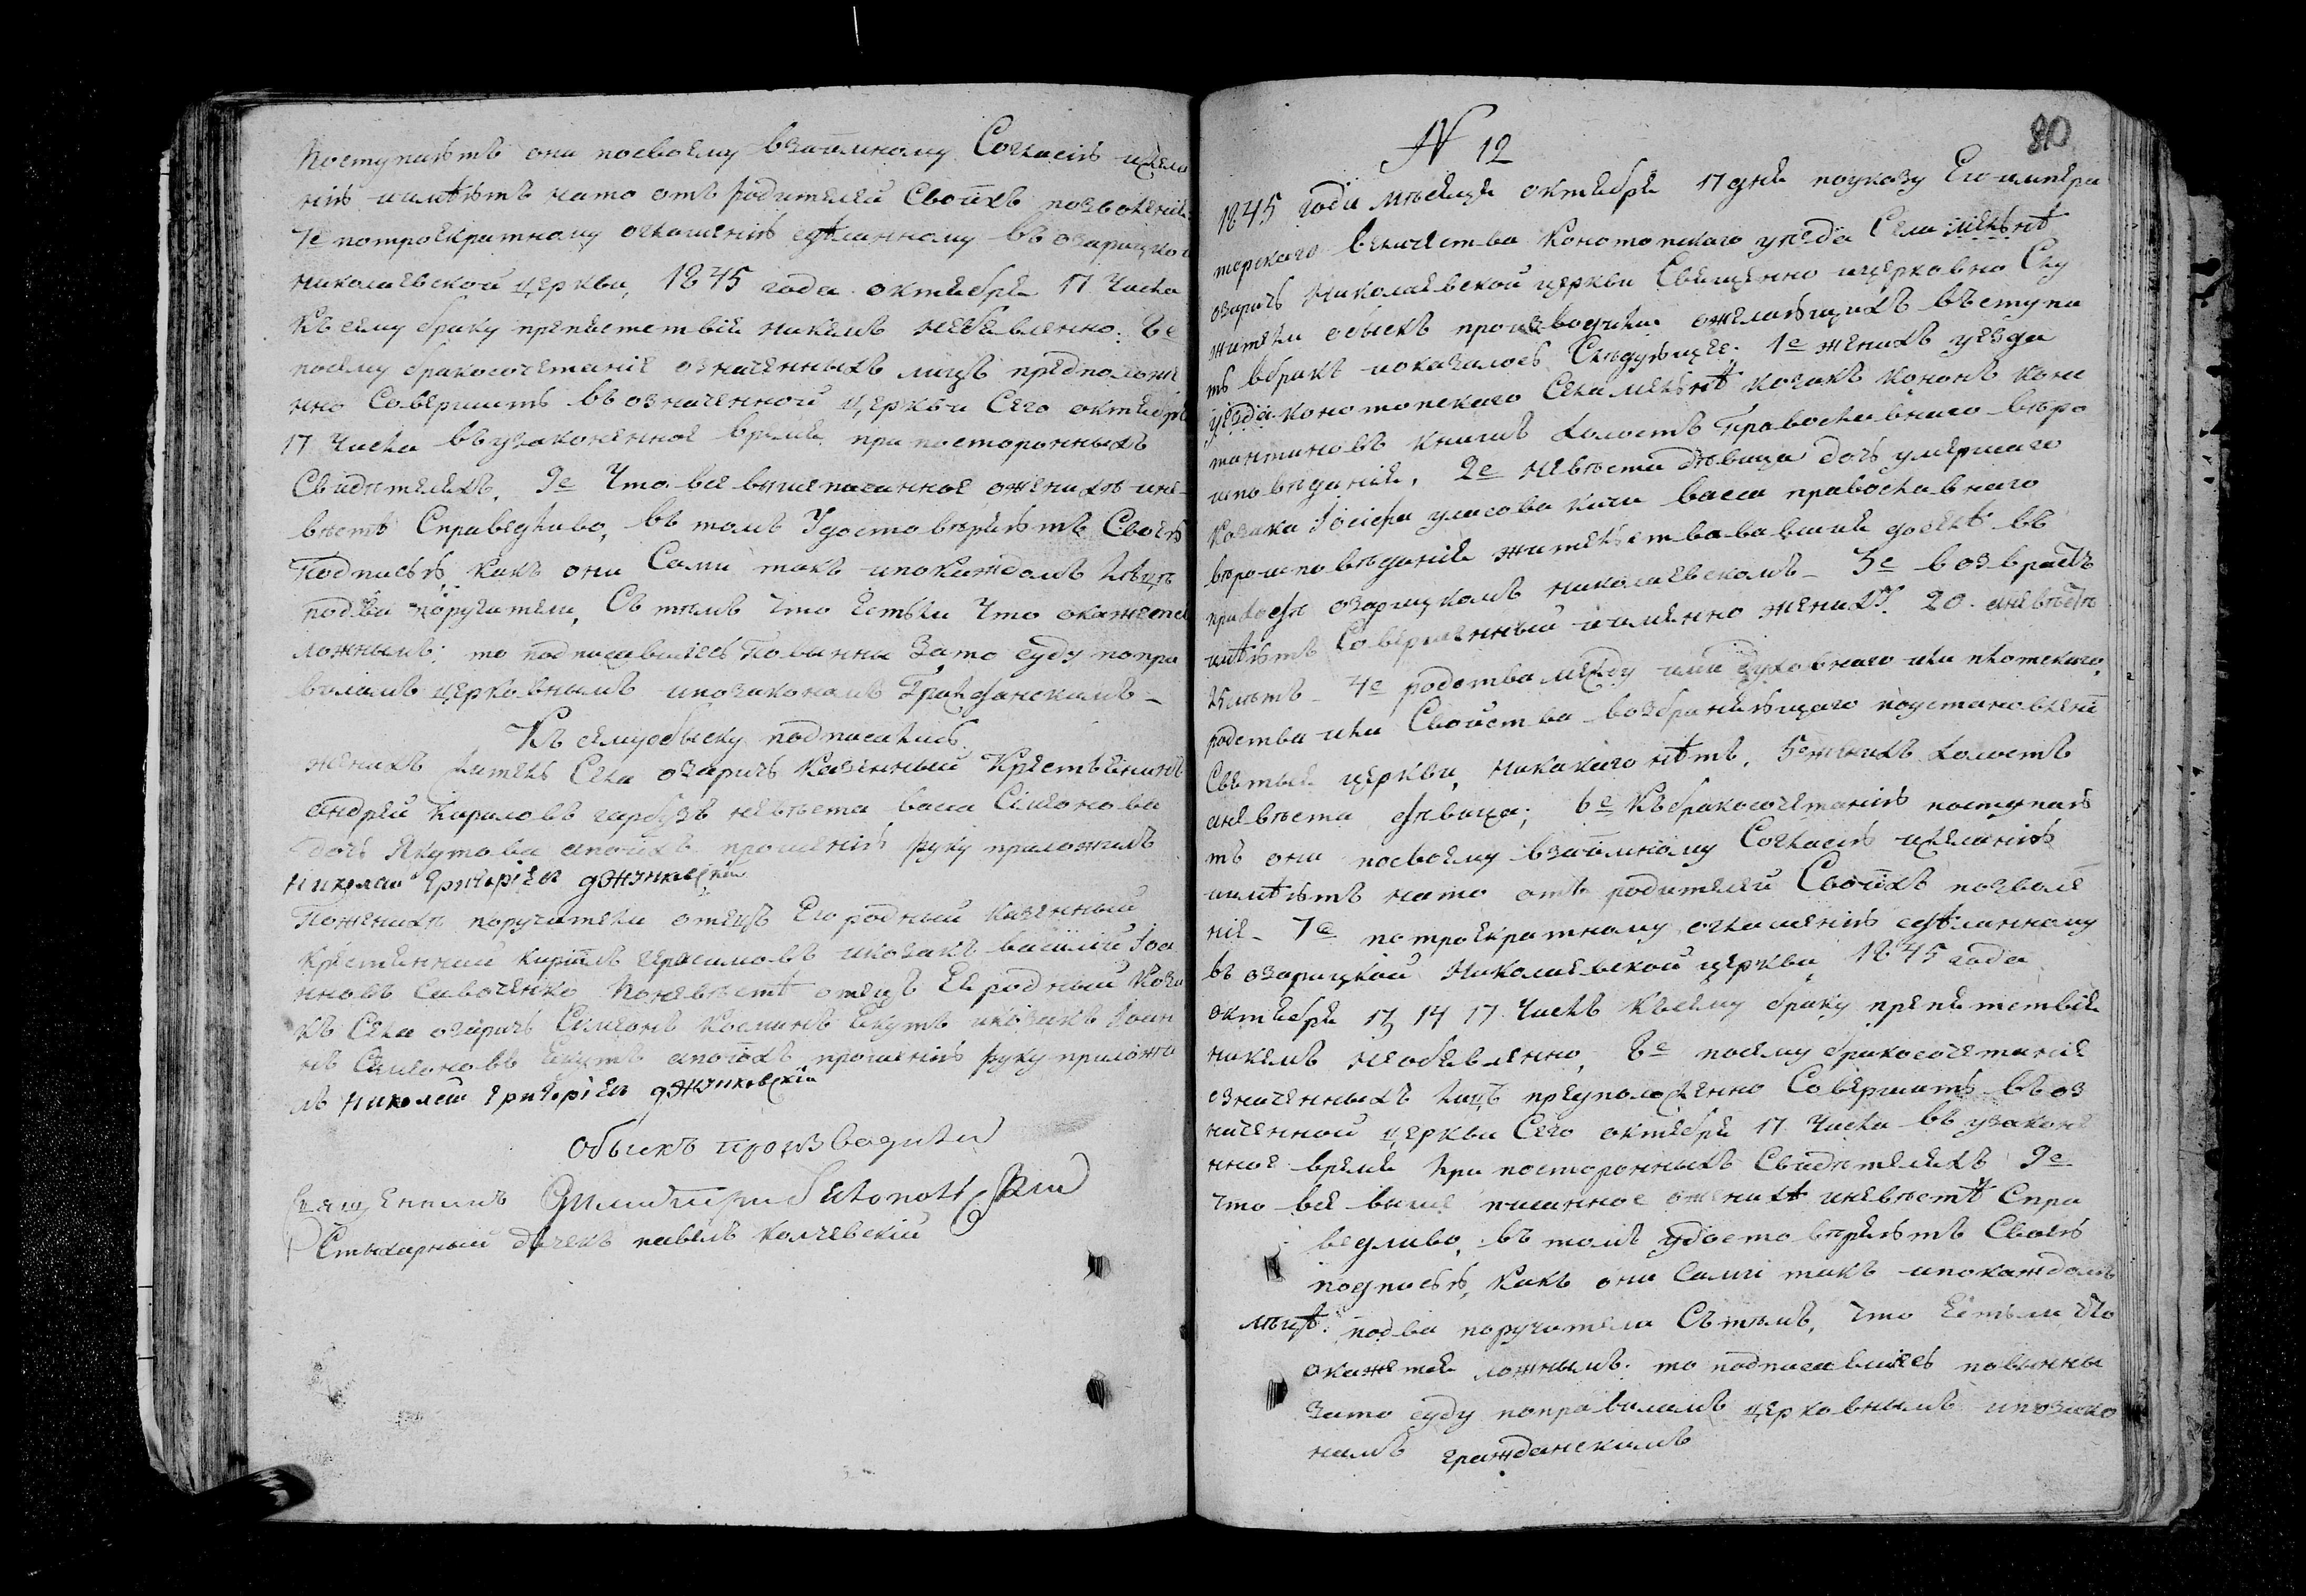 поступаютъ они посвоему взаимному Согласію ижела
нію иимѣютъ нато отъ родителей Своихъ позволенiе
7е потроекратному оглашенію сдѣланному въ озарицкой
николаевской церкви, 1845 года октября 17 числа
Къ сему браку препятствія никемъ необявленно. 8е
посему бракосочетаніе означенныхъ лицъ предположе
нно Совершить въ означенной церкви Сего октября
17 числа въ узаконенное время при постороннихъ
Свидѣтеляхъ. 9е Что все вышеписанное оженихѣ ине-
вѣстѣ Справедливо, въ томъ Удостовѣряютъ Своею
Подписью какъ они Сами такъ ипокаждомъ лицѣ
подва поручители, Съ тѣмъ что Естьли Что окажется
ложнымъ: то подписавшіесь Повинны Зато суду попра
виламъ церковнымъ ипозаконамъ Гражданскимъ –
Къ семуобыску подписались
женихъ житель Села озаричъ Казенный Крестьянинъ
андрей Кириловъ гарбузъ невѣста васса Симеонова
дочь Якутова апоихъ прошенію руку приложилъ
николай григоріев джунковскій
Поженихѣ поручители отецъ Его родный казенный
Крестянинъ кирилъ герасимовъ икозакъ василій Іоа
нновъ Савоченко Поневѣстѣ отецъ Ея родный Коза
къ Села озаричъ Симеонъ Косминъ Якутъ икозакъ Іоан
нъ Симеоновъ Якутъ апоихъ прошенію руку приложи
лъ николай григоріев джунковскій
Обыскъ производили
Священникъ Димитрій
Стихарный дячекъ павелъ колчевскій
80
N 12
1845 года мѣсяца октября 17 дня поуказу Его импера
торскаго величества Конотопскаго уѣзда Села
озаричъ Николаевской церкви Священно ицерковно Слу
жители обыскъ производили ожелающихъ въступи
ть вбракъ иоказалось Слѣдующее: 1е женихъ уезда
уезда конотопскаго Села козакъ кононъ кон
стантиновъ холостъ Православнаго вѣро
исповѣданія, 2е невѣста дѣвица дочь умершаго
козака Іосифа власова васса православнаго
вѣроисповѣданія жительствовавшія доселѣ въ
приходѣ озарицкомъ николаевскомъ – 3е возврастъ
имѣютъ Совершенный иименно женихъ 20. аневѣста
лѣтъ – 4е родства между ими духовнаго или плотскаго,
родства или Свойства возбраняющаго поустановленію
Святыя церкви, никакаго нѣтъ, 5е женихъ холостъ
аневѣста дѣвица; 6е Къбракосочетанію поступаю
тъ они посвоему взаимному Согласію ижеланію
иимѣютъ нато отъ родителей Своихъ позволе
ніе – 7е потроекратному оглашенію сдѣланному
въ озарицкой Николаевской церкви 1845 года
октября 14 17 числъ Късему браку препятствія
никемъ необявленно, 8е посему бракосочетаніе
означенныхъ лицъ предположенно Совершить въ оз
наченной церкви Сего октября 17 числа въ узаконе
нное время при постороннихъ Свидѣтеляхъ 9е
что все выше писанное оженихѣ иневѣстѣ Спра
ведливо, въ томъ удостовѣряютъ Своею
подписью, какъ они Сами такъ ипокаждомъ
лицѣ: подва поручители Сътѣмъ, что Естьли Что
окажется ложнымъ: то подписавшіесь повинны
Зато суду поправиламъ церковнымъ ипозако
намъ гражданскимъ